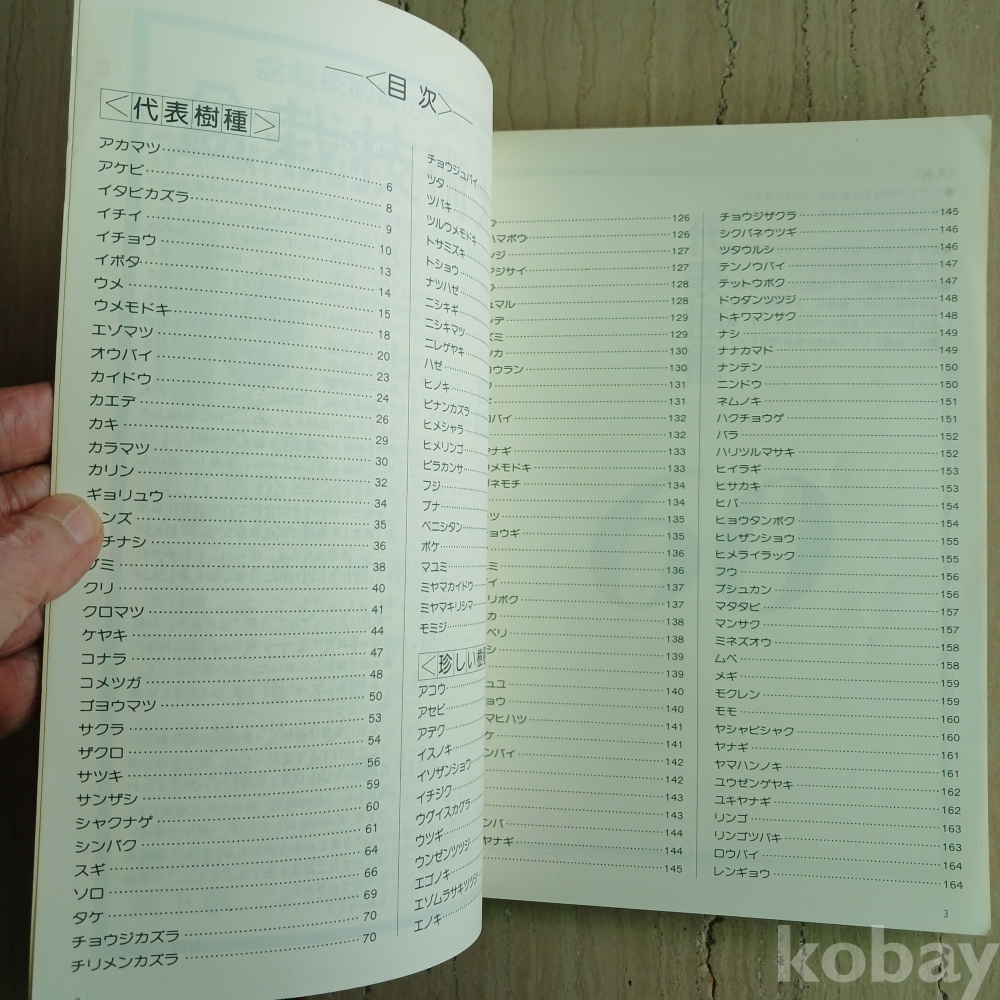 ＜目次＞
＜代表樹種＞
アカマツ 6
アケビ 8
イタビカズラ 9
イチイ 10
イチョウ 13
イボタ 14
ウメ 15
ウメモドキ 18
エゾマツ 20
オウバイ 23
カイドウ 24
カエデ 26
カキ 29
カラマツ 30
カリン 32
ギョリュウ 34
ンズ 35
チナシ 36
グミ 38
クリ 40
クロマツ 41
ケヤキ 44
コナラ 47
コメツガ 48
ゴヨウマツ 50
サクラ 53
ザクロ 54
サツキ 56
サンザシ 59
シャクナゲ 60
シンパク 61
スギ 64
ソロ 66
タケ 69
チョウジカズラ 70
チリメンカズラ 70
チョウジュバイ
ツタ
ツバキ
ツルウメモドキ
トサミズキ
トショウ
ナツハゼ
ニシキギ
ニシキマツ
ニレゲヤキ
ハゼ
ヒノキ
ビナンカズラ
ヒメシャラ
ヒメリンゴ
ピラカンサ
フジ
ブナ
ベニシタン
ボケ
マユミ
ミヤマカイドウ
ミヤマキリシマ
モミジ
＜珍しい樹
アコウ
アセビ
アデク
イスノキ
イソザンショウ
イチジク
ウグイスカグラ
ウツギ
ウンゼンツツジ
エゴノキ
エゾムラサキツツジ
エノキ
ウ 126
ハマボウ 126
ンジ 127
ヤジサイ 127
128
ュマル 128
ンデ 129
ズミ 129
ツカ 130
ョウラン 130
131
131
ロバイ 132
132
ナギ 133
リメモドキ 133
ズネモチ 134
134
ーツ 135
ョウギ 135
136
ミ 136
イ 137
リボク 137
カ 138
ベリ 138
シ 139
139
ュユ 140
ョウ 140
マヒハツ 141
ケ 141
ンバイ 142
142
143
143
ンバ 144
ヤナギ 144
145
チョウジザクラ 145
シクバネウツギ 146
ツタウルシ 146
テンノウバイ 147
テットウボク 147
ドウダンツツジ 148
トキワマンサク 148
ナシ 149
ナナカマド 149
ナンテン 150
ニンドウ 150
ネムノキ 151
ハクチョウゲ 151
バラ 152
ハリツルマサキ 152
ヒイラギ 153
ヒサカキ 153
ヒバ 154
ヒョウタンボク 154
ヒレザンショウ 155
ヒメライラック 155
フウ 156
ブシュカン 156
マタタビ 157
マンサク 157
ミネズオウ 158
ムベ 158
メギ 159
モクレン 159
モモ 160
ヤシャビシャク 160
ヤナギ 161
ヤマハンノキ 161
ユウゼンゲヤキ 162
ユキヤナギ 162
リンゴ 163
リンゴツバキ 163
ロウバイ 164
レンギョウ 164
3
kobay